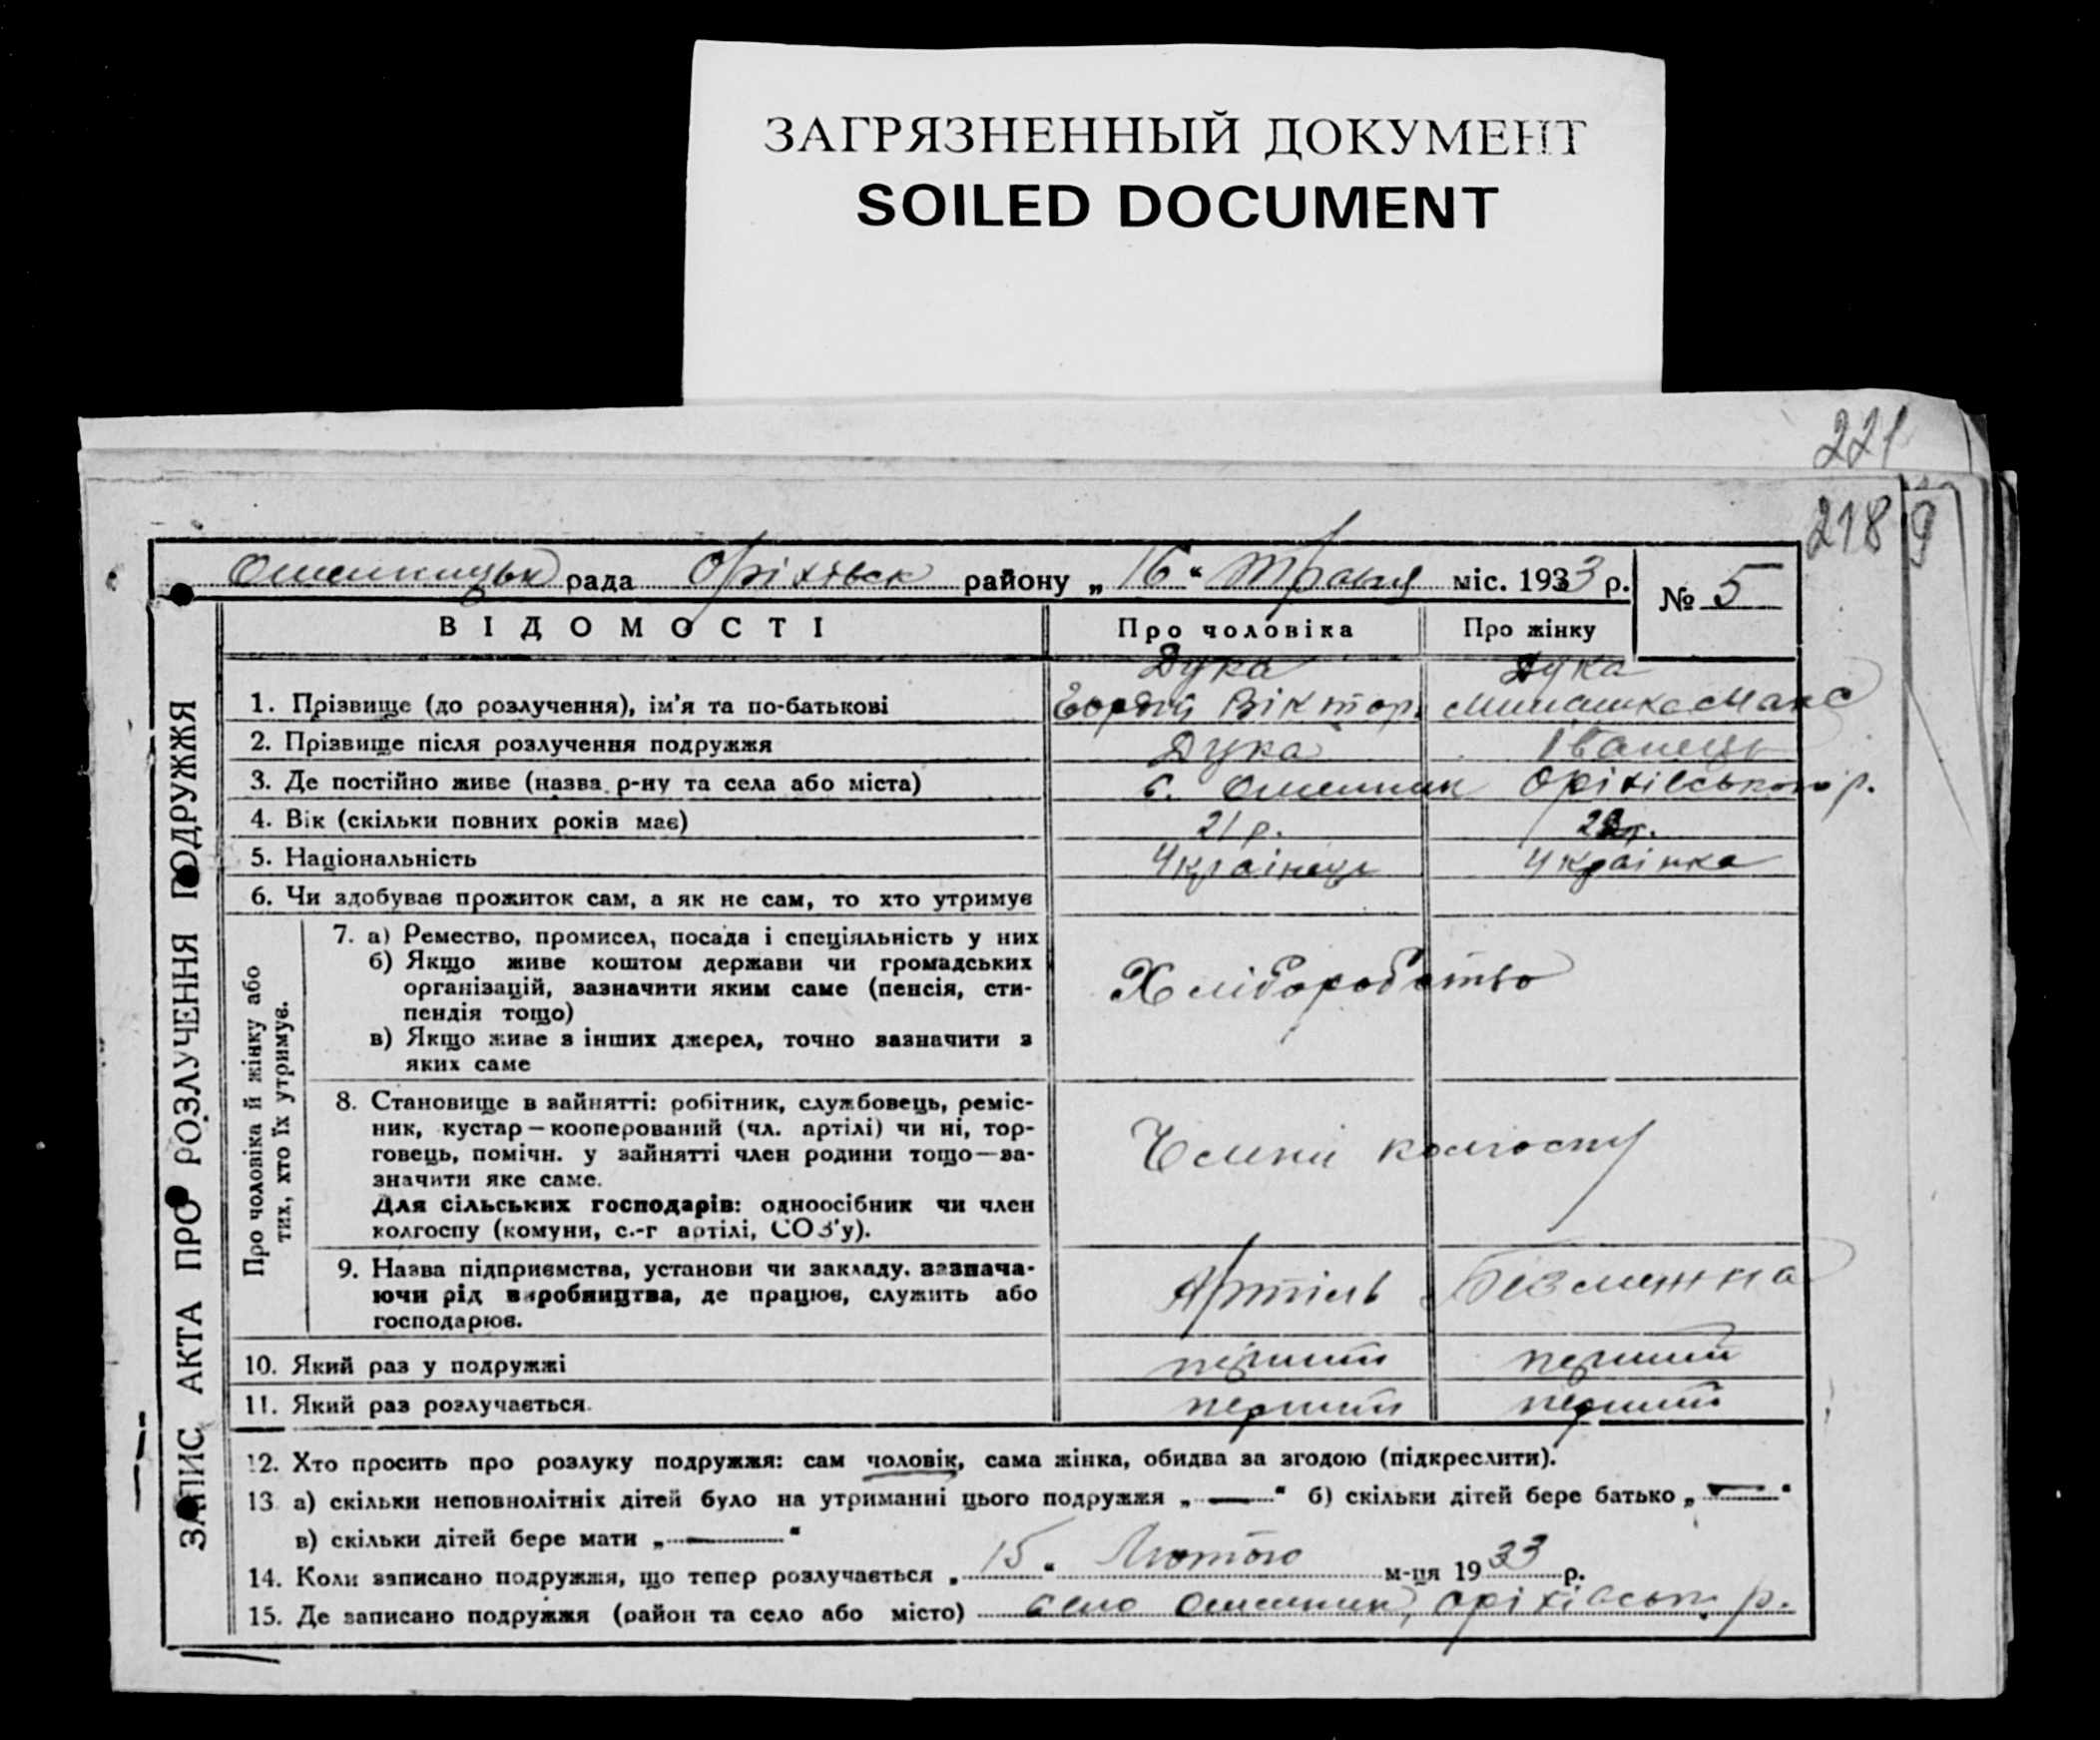 ЗАГРЯЗНЕННЫЙ ДОКУМЕНТ
SOILED DOCUMENT
221
218
рада Оріхівськ району „16“ травня міс. 1933 р. № 5
ВІДОМОСТІ Про чоловіка Про жінку
Дука Дука
1. Прізвище (до розлучення), ім'я та по-батькові Гордій Віктор.
2. Прізвище після розлучення подружжя Дука Іванець
3. Де постійно живе (назва р-ну та села або міста) с. Омельник Оріхівського р.
4. Вік (скільки повних років має) 21 р.
5. Національність Українець Українка
6. Чи здобуває прожиток сам, а як не сам, то хто утримує
Про чоловіка й жінку або
тих, хто їх утримує.
7. а) Ремество, промисел, посада і спеціяльність у них
б) Якщо живе коштом держави чи громадських
організацій, зазначити яким саме (пенсія, сти-
пендія тощо)
Хліборобство
в) Якщо живе з інших джерел, точно зазначити з
яких саме
8. Становище в зайнятті: робітник, службовець, реміс-
ник, кустар—кооперований (чл. артілі) чи ні, тор-
говець, помічн. у зайнятті член родини тощо—за-
значити яке саме.
Члени колгоспу
Для сільських господарів: одноосібник чи член
колгоспу (комуни, с.-г артілі, СОЗ'у).
9. Назва підприємства, установи чи закладу, зазнача-
ючи рід виробництва, де працює, служить або
господарює.
Артіль
10. Який раз у подружжі перший перший
11. Який раз розлучається перший перший
12. Хто просить про розлуку подружжя: сам чоловік, сама жінка, обидва за згодою (підкреслити).
13 а) скільки неповнолітніх дітей було на утриманні цього подружжя „—“ б) скільки дітей бере батько „—“
в) скільки дітей бере мати „—“
14. Коли записано подружжя, що тепер розлучається „15“ Лютого м-ця 1933 р.
15. Де записано подружжя (район та село або місто) село Омельник, Оріхівськ. р.
ЗАПИС АКТА ПРО РОЗЛУЧЕННЯ ПОДРУЖЖЯ